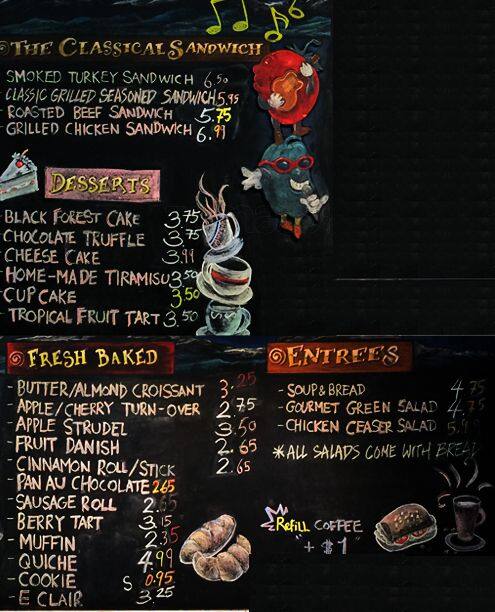 The Classical Sandwich
SMOKED TURKEY SANDWICH 6.50
CLASSIC GRILLED SEASONED SANDWICH 5.95
ROASTED BEEF SANDWICH 5.75
GRILLED CHICKEN SANDWICH 6.99
DESSERTS
BLACK FOREST CAKE 3.75
CHOCOLATE TRUFFLE 3.75
CHEESE CAKE 3.99
HOME-MADE TIRAMISU 3.50
CUP CAKE 3.50
TROPICAL FRUIT TART 3.50
FRESH BAKED
- BUTTER/ALMOND CROISSANT 3.25
- APPLE/CHERRY TURN-OVER 2.75
- APPLE STRUDEL 3.50
- FRUIT DANISH 2.65
CINNAMON ROLL/STICK 2.65
- PAN AU CHOCOLATE 2.65
- SAUSAGE ROLL
- BERRY TART 3.15
- MUFFIN 2.35
- QUICHE 4.99
- COOKIE S 0.95
- E CLAIR 3.25
ENTREES
- SOUP & BREAD 4.75
- GOURMET GREEN SALAD 4.75
- CHICKEN CEASER SALAD
*ALL SALADS COME WITH BREAD
Refill COFFEE
"+ $1"